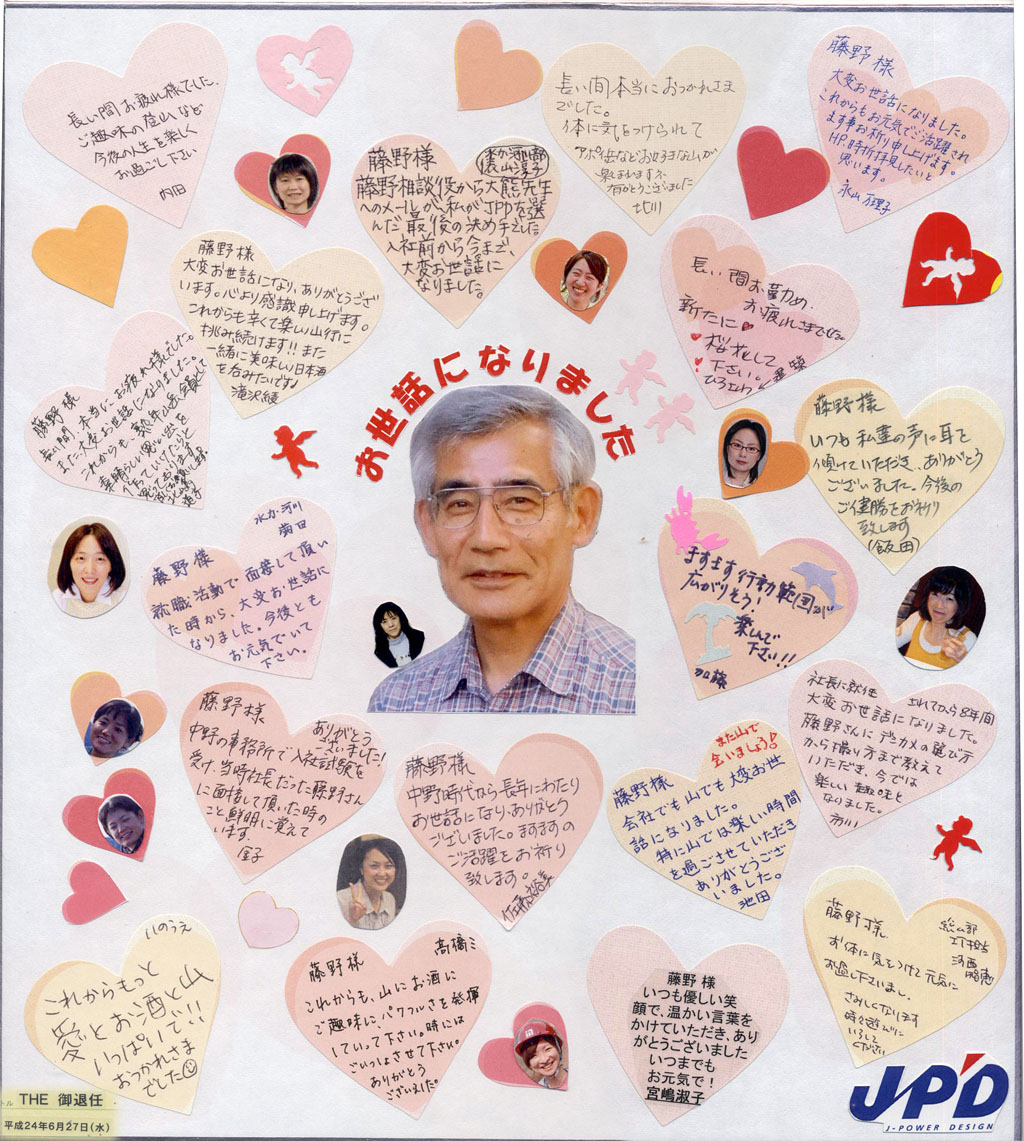 長い間お疲れ様でした。
ご趣味の登山など
今後の人生を楽しく
お過ごし下さい
内田
長い間本当におつかれさま
でした。
体に気をつけられて
アポイ岳などお好きな山が
ありがとうございました
北川
藤野様
大変お世話になりました。
これからもお元気でご活躍され
ます事お祈り申し上げます。
HP時折拝見したいと
思います。
永山 万理子
藤野様
藤野相談役から大熊先生
へのメールが、私がJPDを選
んだ最後の決め手でした。
入社前から今まで、
大変お世話に
なりました。
藤野様
大変お世話になり、ありがとうござ
います。心より感謝申し上げます。
これからも辛くて楽しい山行に
挑み続けます!!また
一緒に美味しい日本海
を呑みたいです♪
滝沢綾
長い間お勤め
お疲れさまでした
新たに
桜花して
下さい。
お世話になりました
藤野様
長い間、本当にお疲れ様でした。
また大変お世話になりました。
これからも、熟年山岳会員として
素晴らしい思い出を
藤野様
いつも私輩の声に耳を
傾けていただき、ありがとう
ございました。今後の
ご健勝をお祈り
致します
(飯田)
水力・河川
藤野様
就職活動で面接して頂い
た時から、大変お世話に
なりました。今後とも
お元気でいて
下さい。
ますます行動範囲が
広がりそう!
楽しんで
下さい!!
加藤
社長に就任されてから8年間
大変お世話になりました。
藤野さんにデジカメの選び方
から撮り方まで教えて
いただき、今では
楽しい趣味と
なりました。
市川
藤野様
ありがとう
ございました!
中野の事務所で入社試験を
受け、当時社長だった藤野さん
に面接して頂いた時の
こと鮮明に覚えて
います。
金子
藤野様
中野時代から長年にわたり
お世話になり、ありがとう
ございました。ますますの
ご活躍をお祈り
致します。
また山で
会いましょう!
藤野様
会社でも山でも大変お世
話になりました。
特に山では楽しい時間
を過ごさせていただき
ありがとうござ
いました。
池田
いのうえ
これからもっと
愛とお酒と山
いっぱいで!!
おつかれさま
でした
高橋ミ
藤野様
これからも、山にお酒に
ご趣味に、パワフルさを発揮
していって下さい。時には
ごいっしょさせて下さい。
ありがとう
ございました。
藤野 様
いつも優しい笑
顔で、温かい言葉を
かけていただき、あり
がとうございました
いつまでも
お元気で!
宮嶋淑子
藤野様
総ム部
お体に気をつけて元気に
お過し下さいまし。
さみしくなります
時々遊びに
いらして
ください
トル THE 御退任
平成24年6月27日(水)
JPD
J-POWER DESIGN